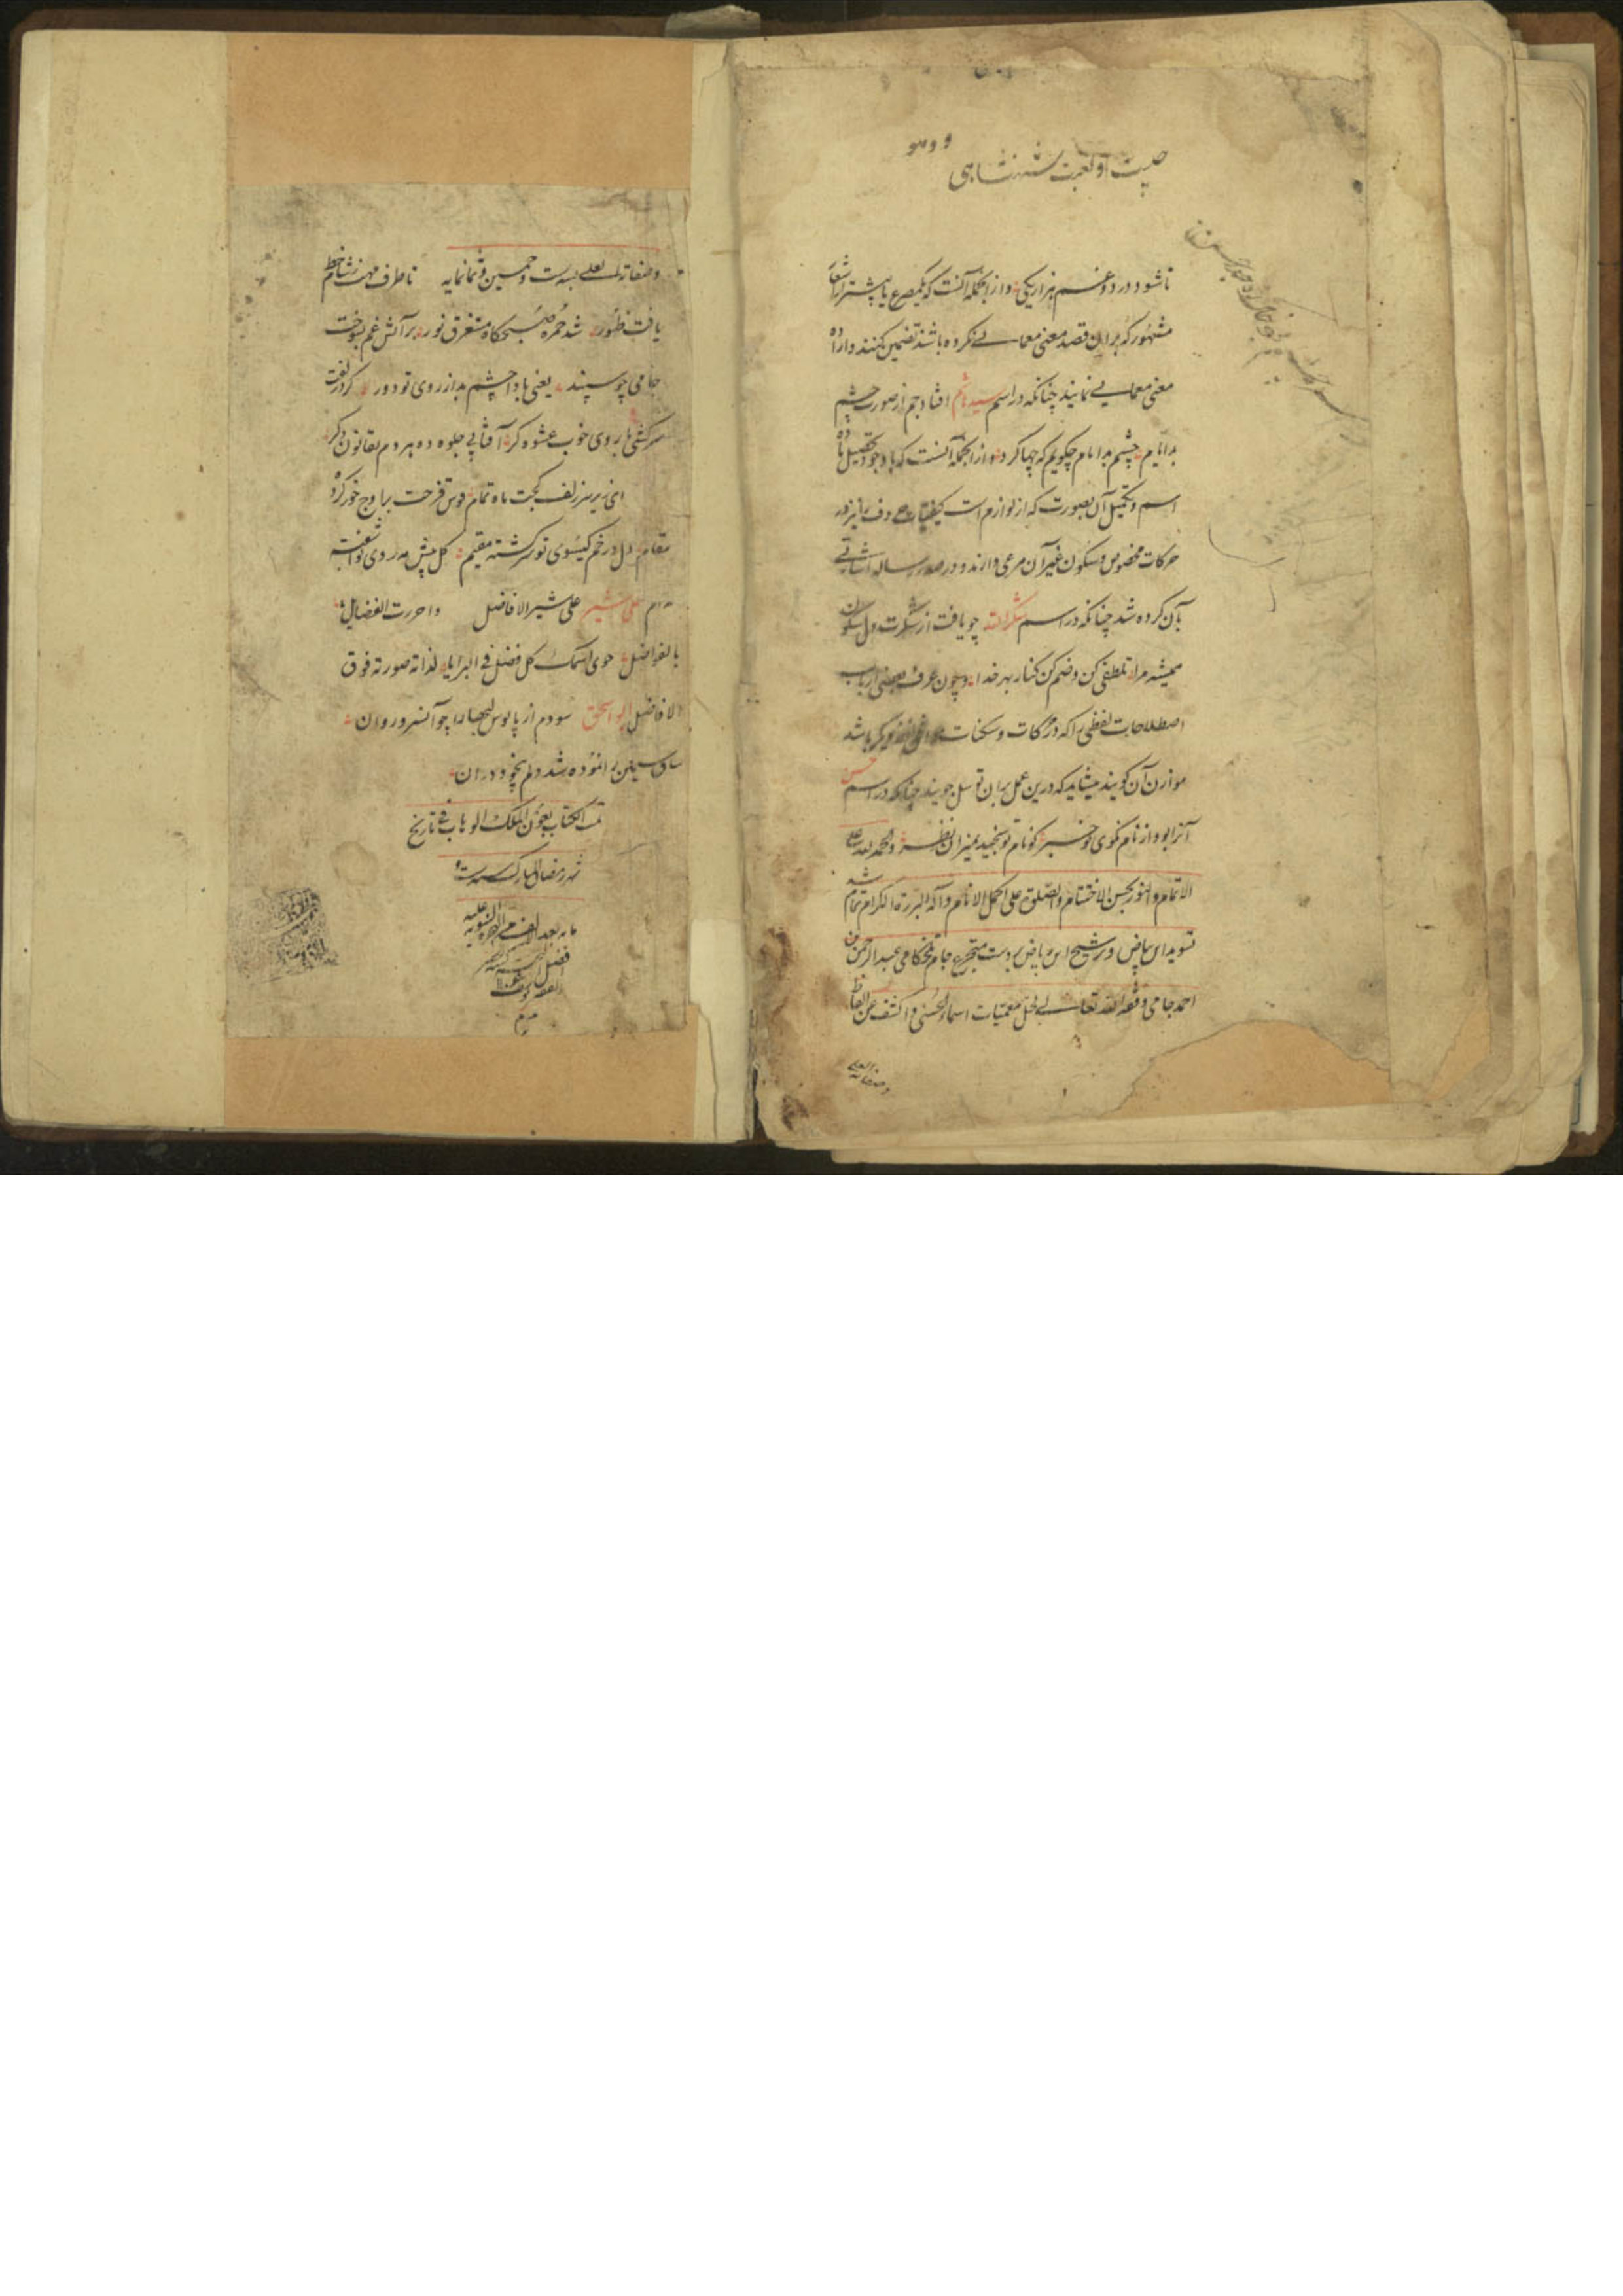 صیت او لعبت شهنشاهی
تا شود درد و غم هزار یکی و از آنجمله آنست که یکمصرع یا بیشتر از اشعار
مشهور که بر آن قصد معنی معمایی نکرده باشند تضمین کنند و ازان اراده
معنی معمایی نمایند چنانکه در اسم سید بام افتاد جم از صورت چشم
بد ایام چشم بد ایام چگویم که چها کرد و از آنجمله آنست که با وجود تحصیل ماده
اسم و تکمیل آن بصورت که از لوازم است کیفیات حروف را نیز در
حرکات مخصوص و سکون غیر آن مرعی دارند و در صدر رساله اشارتی
بآن کرده شد چنانکه در اسم شکرالله چو یافت از شکرت دل سکون
همیشه مرا تلطفی کن و ضم کن کنار بهر خدا و چون عرف بعضی ارباب
اصطلاحات لفظی را که در حرکات و سکنات موافق لفظ دیگر باشد
موازن آن گویند میشاید که درین عمل بران توسل جویند چنانکه در اسم حسن
آنرا بود از نام نکوی تو خبر کو نام تو سنجید بمیزان نظر والحمد لله علی
الاتمام والفوز بحسن الاختتام والصلوة علی اکمل الانام وآله البررة الکرام تمام شد
تسوید این بیاض و ترشیح این ریاض بر دست متجرع جام تلخکامی عبد الرحمن بن
احمد جامی وفقه الله تعالی لحل معمیات اسماء الحسنی والکشف عن الغاز
وصفاته العلی
وصفاته العلی لسنة ست وخمسین وثمانمایه تا طرف مهت نشان خط
یافت ظهور شد حمره صبحگاه مستغرق نور بر آتش غم بسوخت
جامی چو سپند یعنی بادا چشم بد از روی تو دور
سرکشی با روی خوب عشوه گر آفتابی جلوه ده هر دم بقانون دگر
ای زیر سر زلف کجت ماه تمام قوس قزحت بر اوج خور کرده
مقام دل در خم گیسوی تو سرگشته مقیم گل پیش مه روی تو آشفته
مدام علی شیر علی شیر الافاضل واحرزت الفضایل
بالفواضل حوی اسمک کل فضل فی البرایا لذاته صورته فوق
الافاضل ابو اسحق سودم از پابوس لبها را چو آن سرو روان
ساق سیمین را نموده شد دلم بیخود در آن
تمت الکتاب بعون الملک الوهاب فی تاریخ
شهر رمضان المبارک سنه ست و
مایه بعد الالف من الهجرة النبویه علیه